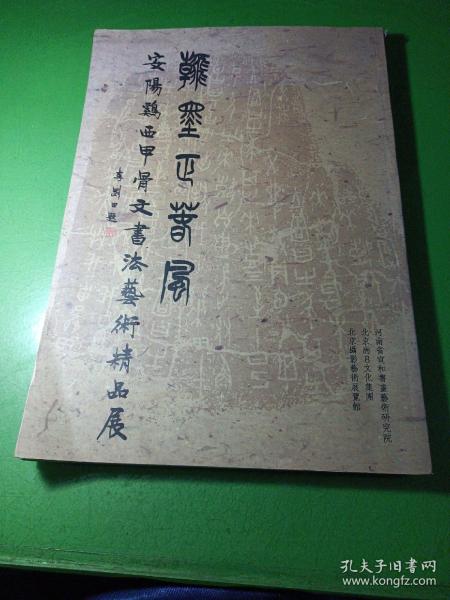 翰墨正春風
安陽鷄西甲骨文書法藝術精品展
李刚田題
河南省宣和書畫藝術研究院
北京尚日文化集團
北京攝影藝術展覽館
孔夫子旧书网
www.kongfz.com